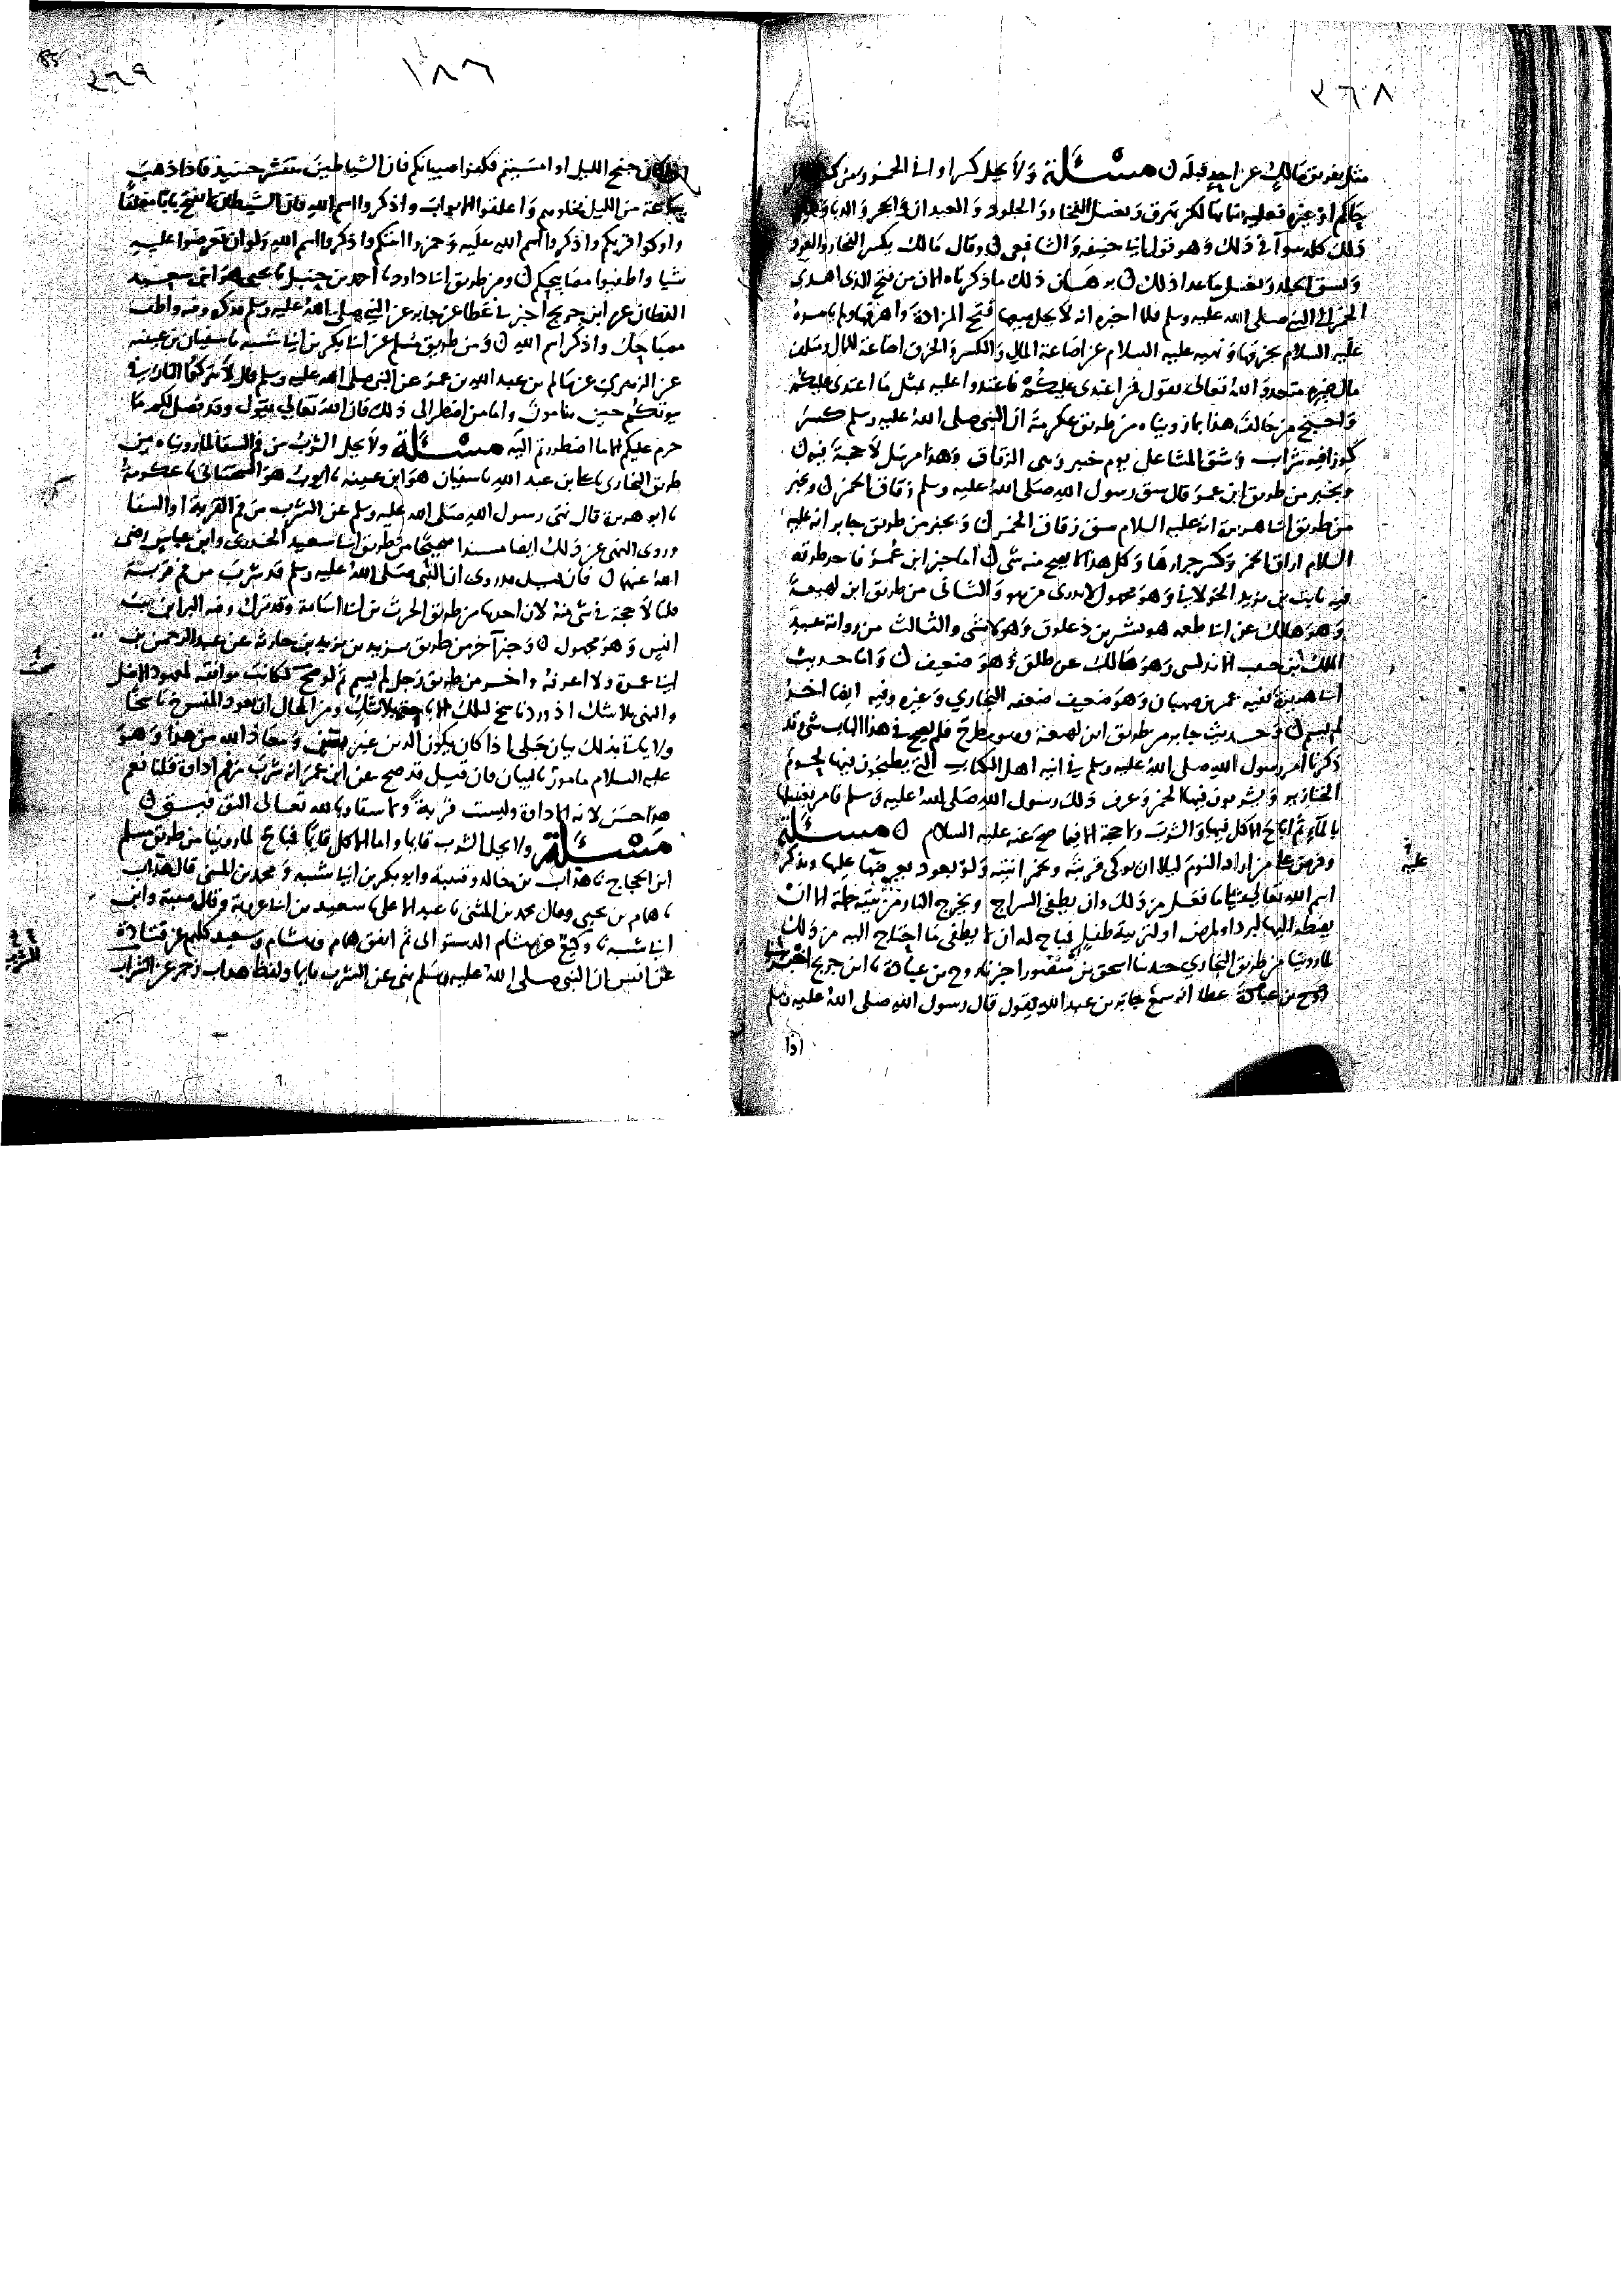 ٣٦٨
مثل تفريق مالك عن احد قبله ن مسئلة ولا يحل كسر اواني الخمر ومن كسرها من
حاكم او غيره فعليه ضمانها لكن تهرق وتغسل الفخار والجلود والعيدان والحجر والدبا وغير
ذلك كله سوآ في ذلك وهو قول ابي حنيفه والشافعي ن وقال مالك يكسر الفخار والعود
ويشق الجلد ويغسل ما عدا ذلك ن برهان ذلك ما ذكرناه الان من فتح الذي اهدى
الخمر الى النبي صلى الله عليه وسلم فلما اخبره انه لا يحل بيعها فتح المزادة واهرقها ولم يامره
عليه السلام بخرقها ونهيه عليه السلام عن اضاعة المال والكسر والخرق اضاعة للمال ومتلف
مال غيره متعدي الله تعالى يقول فمن اعتدى عليكم فاعتدوا عليه بمثل ما اعتدى عليكم
واحتج من خالف هذا بما رويناه من طريق عكرمة ان النبي صلى الله عليه وسلم كسر
كوزا فيه شراب وشق المشاعل يوم خيبر وهي الزقاق وهذا مرسل لا حجة فيه ن
وبخبر من طريق ابن عمر قال شق رسول الله صلى الله عليه وسلم زقاق الخمر ن وبخبر
من طريق ابي هريرة انه عليه السلام شق زقاق الخمر ن وبخبر من طريق جابر انه عليه
السلام اراق الخمر وكسر جرارها وكل هذا لا يصح منه شي ن اما خبر ابن عمر فاحد طرقه
فيه ثابت بن يزيد الخولاني وهو مجهول لا يدرى من هو والثاني من طريق ابن لهيعة
وهو هالك عن ابي طعمه هو بشر بن ذعلوق وهو لا شي والثالث من رواية عبد
الملك بن حبيب الاندلسي وهو هالك عن طلق وهو ضعيف ن واما حديث
ابي هريرة ففيه عمر بن صهبان وهو ضعيف ضعفه البخاري وغيره وفيه ايضا اخر
لم يسم ن وحديث جابر من طريق ابن لهيعه وهو مطرح فلم يصح في هذا الباب شي وقد
ذكرنا امر رسول الله صلى الله عليه وسلم في انيه اهل الكتاب التي يطبخون فيها لحوم
الخنازير ويشربون فيها الخمر وعرف ذلك رسول الله صلى الله عليه وسلم فامر بغسلها
بالمآء ثم اباح الاكل فيها والشرب ولا حجة الا فيما صح عنه عليه السلام ن مسئلة
وفرض على من اراد النوم ليلا ان يوكى قربته ويخمر انيته ولو بعود يعرضه عليها ويذكر
اسم الله تعالى على ما فعل من ذلك وان يطفى السراج ويخرج النار من بيته جملة الا ان
يضطر اليها لبرد او لمرض او لتربية طفل فمباح له ان لا يطفى ما احتاج اليه من ذلك
لما روينا من طريق البخاري حدثنا اسحق بن منصور اخبرنا روح بن عبادة ثا ابن جريج اخبرني
عطا انه سمع جابر بن عبد الله يقول قال رسول الله صلى الله عليه وسلم
اذا
٣٦٩
١٨٦
اذا كان جنح الليل او امسيتم فكفوا صبيانكم فان الشياطين تنتشر حينيذ فاذا ذهب
ساعة من الليل فخلوهم واغلقوا الابواب واذكروا اسم الله فان الشيطان لا يفتح بابا مغلقا
واوكوا قربكم واذكروا اسم الله عليه وخمروا انيتكم واذكروا اسم الله ولو ان تعرضوا عليه
شيا واطفيوا مصابيحكم ن ومن طريق ابي داود ثا احمد بن حنبل ثا يحيى هو ابن سعيد
القطان عن ابن جريج اخبرني عطا عن جابر عن النبي صلى الله عليه وسلم فذكره وفيه واطف
مصباحك واذكر اسم الله ن ومن طريق مسلم عن ابي بكر بن ابي شيبه ثا سفيان بن عيينه
عن الزهري عن سالم بن عبد الله بن عمر عن النبي صلى الله عليه وسلم قال لا تتركوا النار في
بيوتكم حين تنامون واما من اضطر الى ذلك فان الله تعالى يقول وقد فصل لكم ما
حرم عليكم الا ما اضطررتم اليه مسئلة ولا يحل الشرب من فم السقا لما رويناه من
طريق البخاري ثا علي بن عبد الله ثا سفيان هو ابن عيينه ثا ايوب هو السختياني ثا عكرمة
ثا ابو هريرة قال نهى رسول الله صلى الله عليه وسلم عن الشرب من فم القربة او السقا
وروي النهي عن ذلك ايضا مسندا صحيحا من طريق ابي سعيد الخدري وابن عباس رضي
الله عنهما ن فان قيل قد روي ان النبي صلى الله عليه وسلم قد شرب من فم قربة
قلنا لا حجة في شي منه لان احدها من طريق الحرث بن ابي اسامة وقد ترك وفيه البرا ابن بنت
انس وهو مجهول ن وخبر آخر من طريق يزيد بن يزيد بن جابر عن عبد الرحمن بن
ابي عمرة ولا اعرفه واخر من طريق رجل لم يسم ثم لو صح لكانت موافقه لمعهود الاصل
والنهي بلا شك اذ ورد ناسخ لتلك الاباحة بلا شك ومن المحال ان يعود المنسوخ ناسخا
ولا يات بذلك بيان جلي اذا كان يكون الدين غير مبين ومعاذ الله من هذا وهو
عليه السلام مامور بالبيان فان قيل قد صح عن ابن عمر انه شرب من فم اداوة قلنا نعم
هذا حسن لانه الاداوة وليست قربة ولا سقا وبالله تعالى التوفيق ن
مسئلة ولا يحل الشرب قايما واما الاكل قايما فمباح لما روينا من طريق مسلم
ابن الحجاج ثا هداب بن خالد وقتيبة وابو بكر بن ابي شيبه ومحمد بن المثنى قال هداب
ثا همام بن يحيى وقال محمد بن المثنى ثا عبد الاعلى ثا سعيد بن ابي عروبة وقال قتيبة وابن
ابي شيبه ثا وكيع عن هشام الدستوائي ثم اتفق همام وهشام وسعيد كلهم عن قتادة
عن انس ان النبي صلى الله عليه وسلم نهى عن الشرب قايما ولفظ هداب زجر عن الشراب